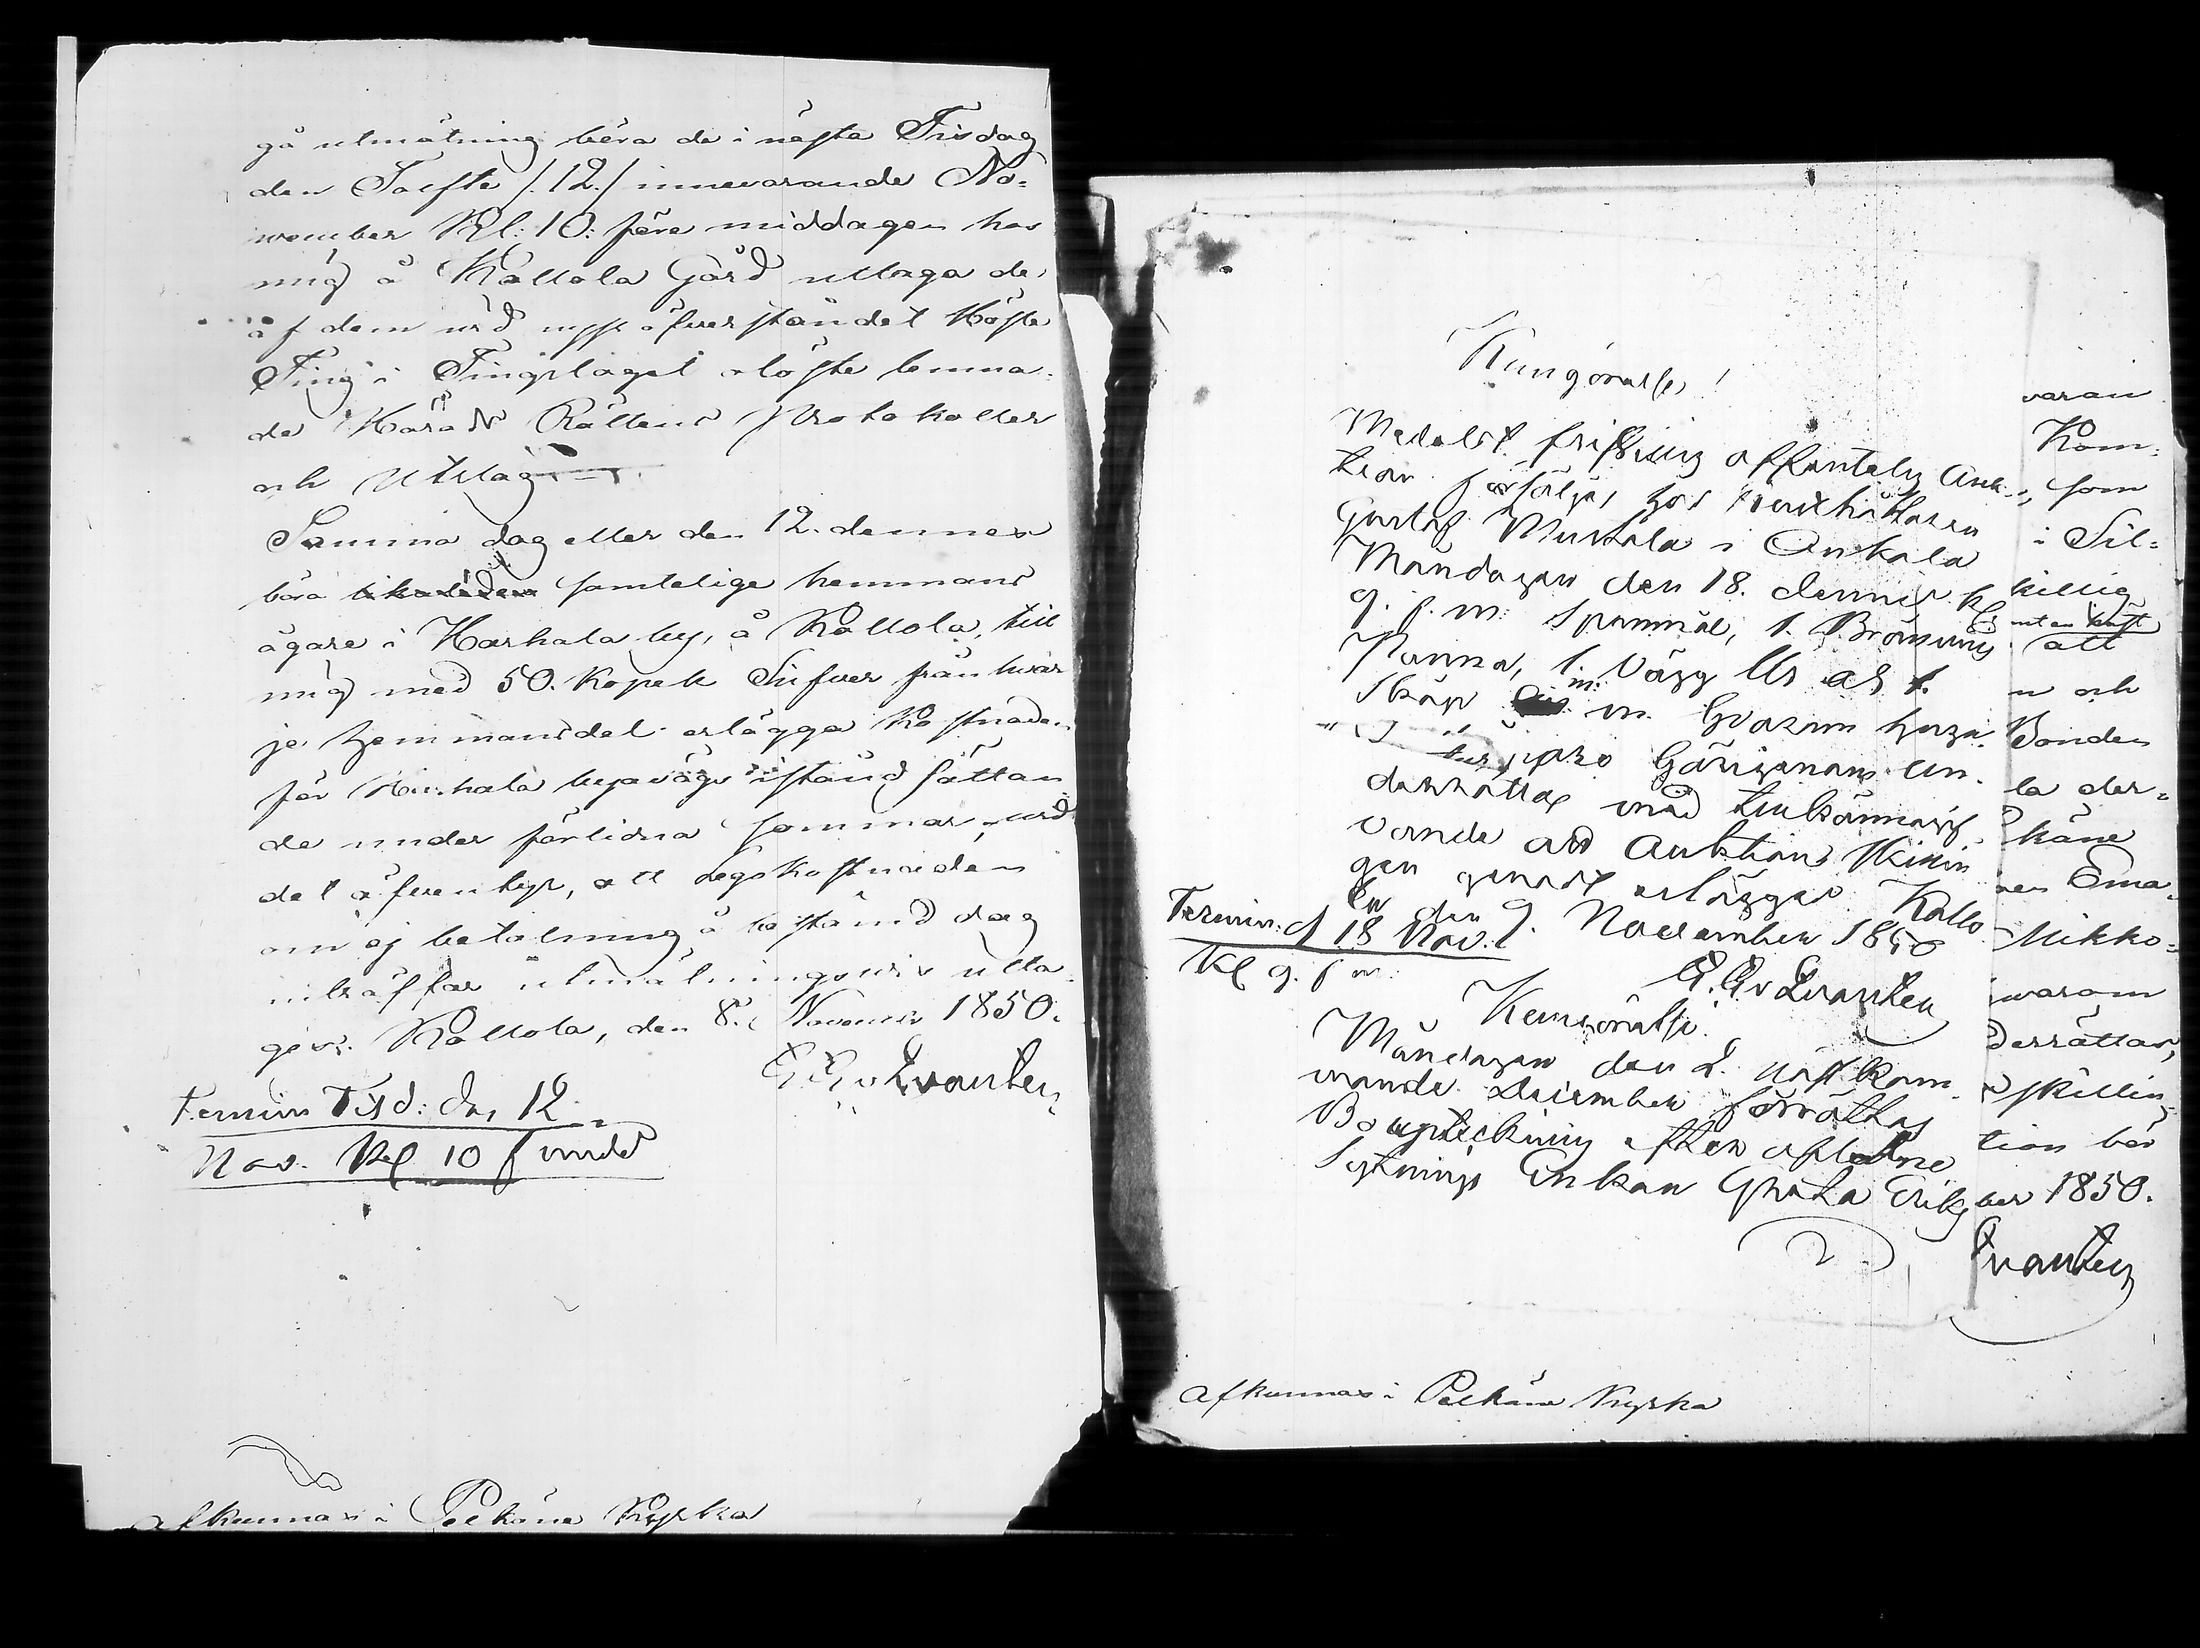 gå utmätning böra de i näjsta Tisdag
den Tolfte /: 12./ innevarande No=
vember Kl: 10: före middagen hos
mig å Kollola Gård uttaga de,
af dem wid nyss öfverståndet Höste
Ting i Tingslaget olöste lemna=
de Härads Rättens Protokoller
och Utslag
Samma dag eller den 12. dennes
böra samtelige hemmans
ägare i Harhala by, å Kollola, till
mig med 50. Kopek Silfver från hvar
je hemmansdel erlägga Kostnaden
för Harhala byavägs iståndsättan
de under förlidna sommar, wid
det äfventyr, att legokostnaden
om ej betalning å bestämd dag
inträffar utmätningsvis utta
ges. Kollola, den 8. November 1850.
G. G. v Qvanten
Termin Tisd: den 12
Nov. Kl 10 f midd
afkunnas i Pelkäne Kyrka
Kungörelse!
Medelst frivillig offentelig Auk=
tion försäljas hos
Gustaf Mustala i Onkala
Måndagen den 18. dennes kl
9. f. m: Spannmål, 1. Brännvins
Panna, 1. Vägg Ur och 1.
Skåp m: m. hvarom huga
Gåringenom un=
derrättas med tillkännagif
vande att Auktions Skillin
gen genast erlägges. Kollo
la den 9. November 1850
G. G. v Qvanten
Termin: d 18 Nov.
Kl 9. f m:
Kungörelse.
Måndagen den 2. nästkom
mande December förrättas
Bouptekning efter aflidne
Sytnings Enkan Greta Eriks
varan
Kom=
som
i Sil=
killig
att
n och
Bonden
la der=
käne
nes Ema=
Mikko=
warom
derrättas,
skillin
tion bör
ber 1850.
Qvanten
afkunnas i Pelkäne Kyrka